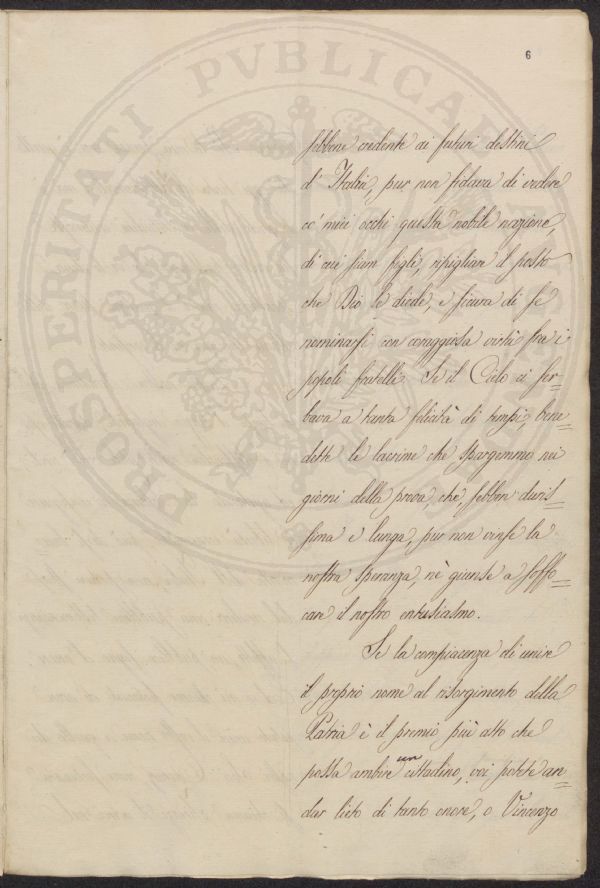 6
sebbene credente ai futuri destini
d'Italia, pur non fidava di vedere
co' miei occhi questa nobile nazione,
di cui siam figli, ripigliare il posto
che Dio le diede, e sicura di se
nominarsi con coraggiosa virtù fra i
popoli fratelli. Se il Cielo ci ser=
bava a tanta felicità di tempi, bene=
dette le lacrime che spargemmo nei
giorni della prova, che, sebben duris=
sima e lunga, pur non vinse la
nostra speranza, nè giunse a soffo=
care il nostro entusiasmo.
Se la compiacenza di unire
il proprio nome al risorgimento della
Patria è il premio più alto che
possa ambire un cittadino, voi potete an=
dar lieto di tanto onore, o Vincenzo
PROSPERITATI PVBLICAE